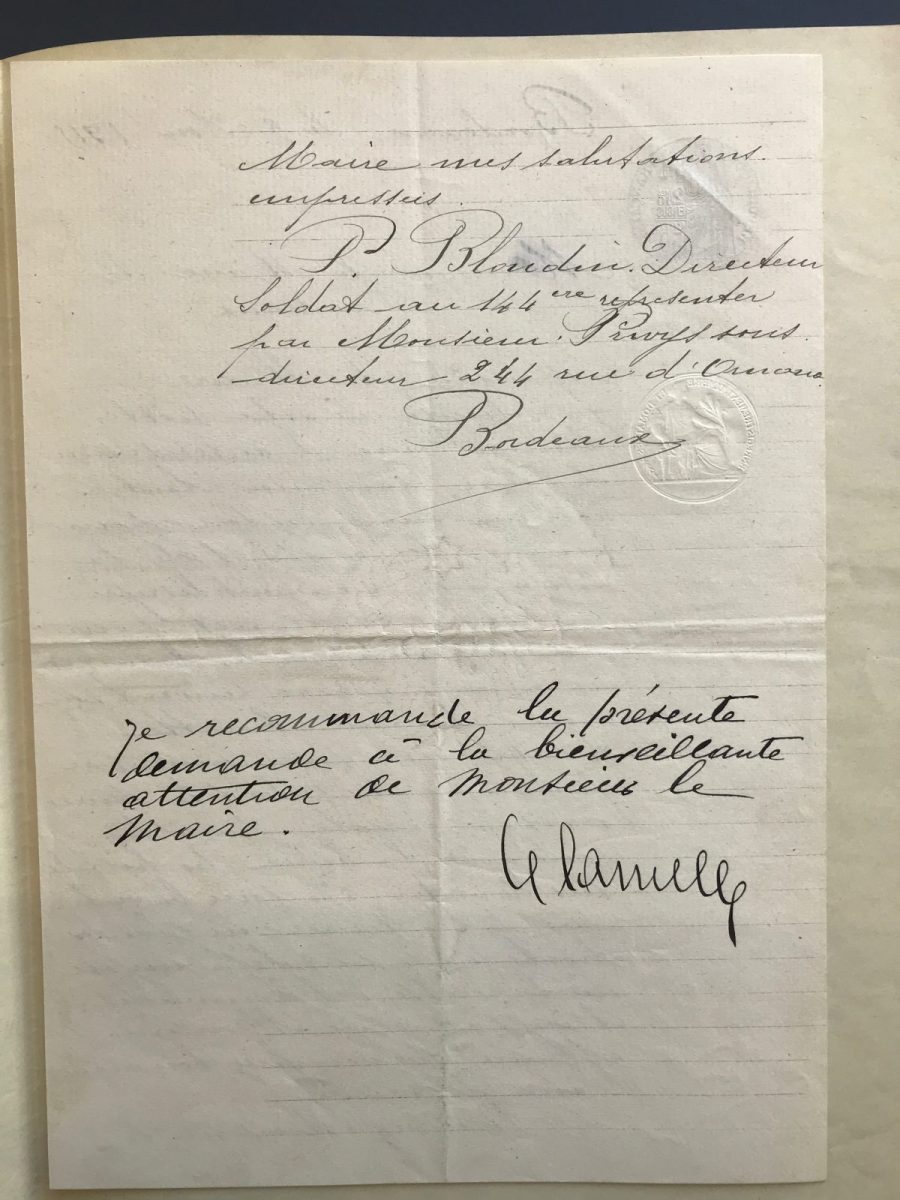 Maire mes salutations
empresseis.
P. Blondin. Directeur
Soldat au 144ere representer
par Monsieur. sous
directeur 244 rue d'Ornano
Bordeaux
je recommande la présente
demande à la bienveillante
attention de Monsieur le
Maire.